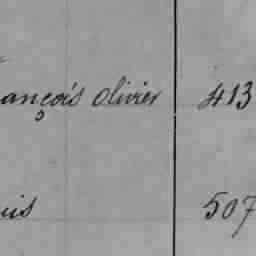 ançois Olivier 413
uis 507